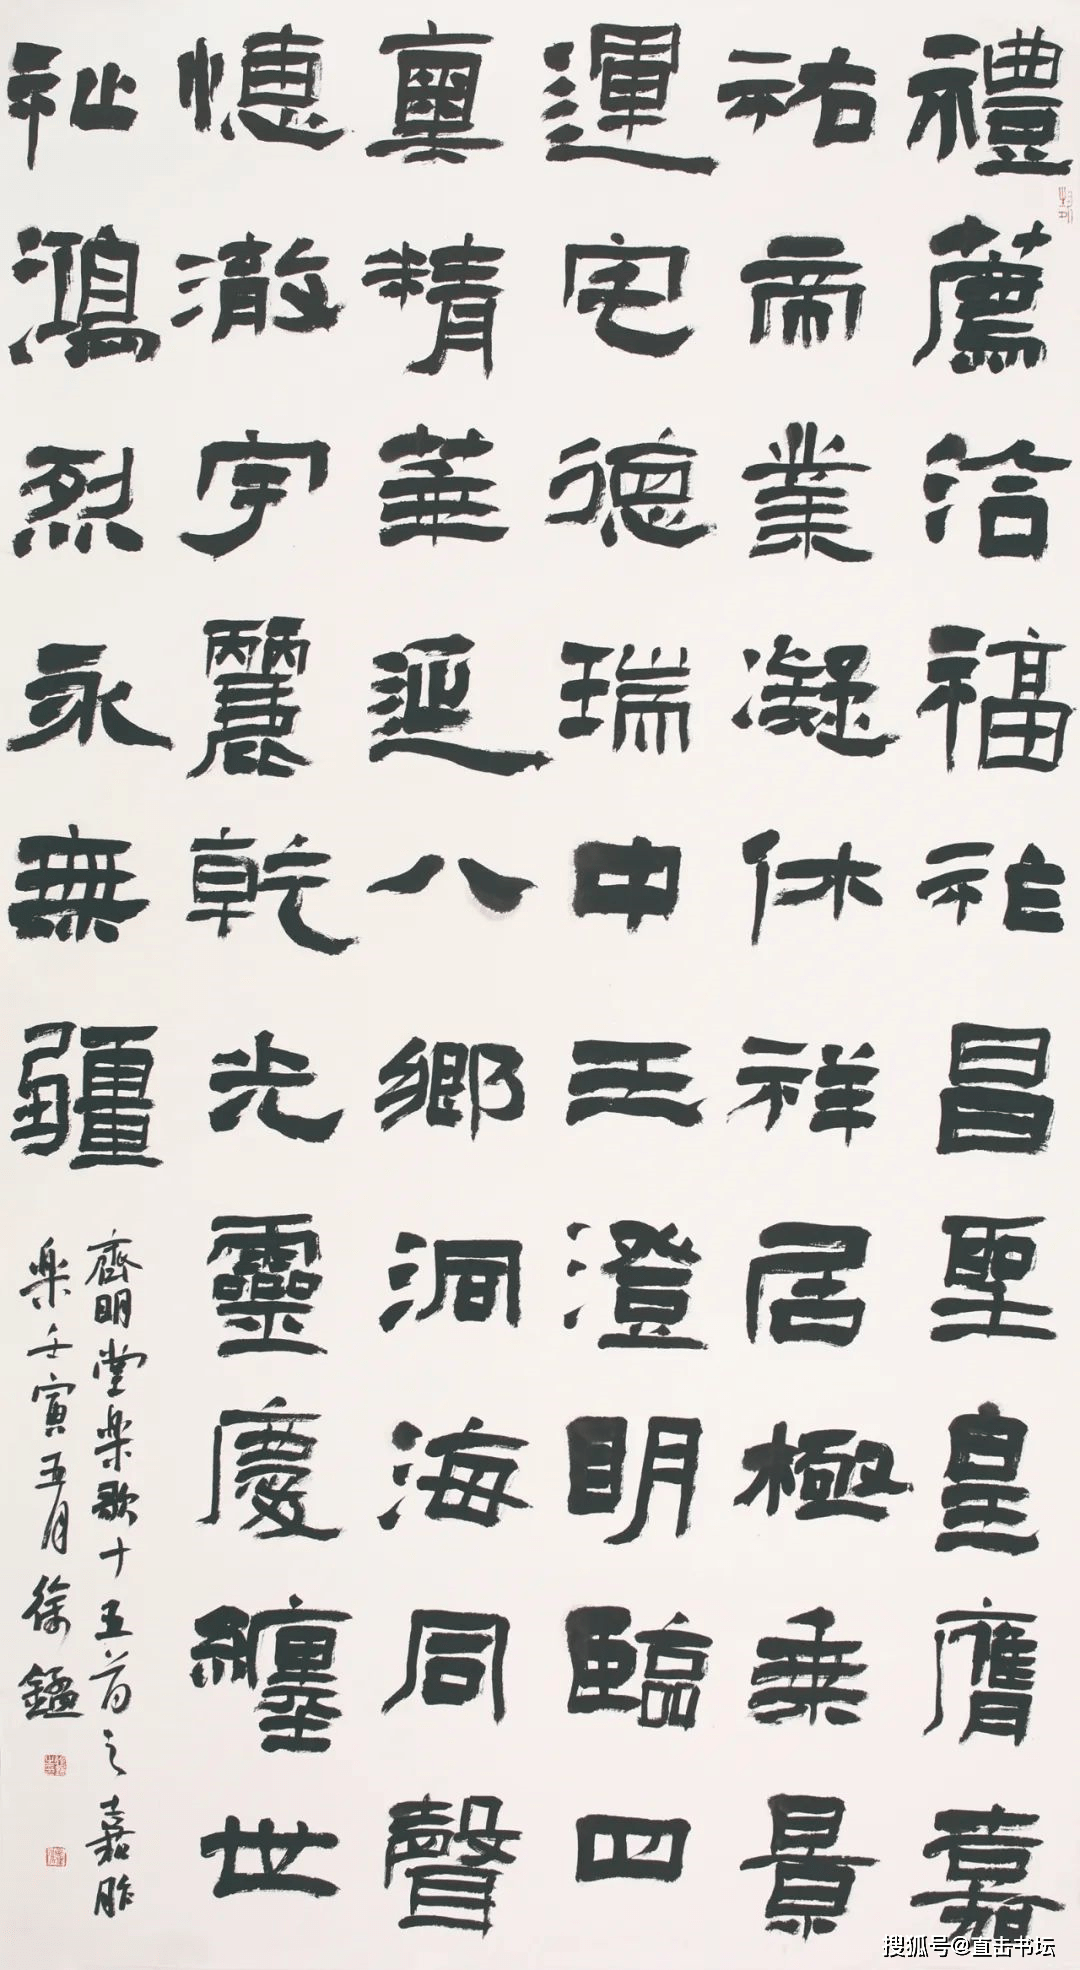 禮薦洽福祚昌聖皇膺嘉
祐帝業凝休祥居極乘景
運宅德瑞中王澄明臨四
奧精華延八鄉洞海同聲
憓澈宇麗乾光靈慶纏世
祉鴻烈永無疆
齊明堂樂歌十五首之嘉胙
樂壬寅五月徐鑑
搜狐号@直击书坛